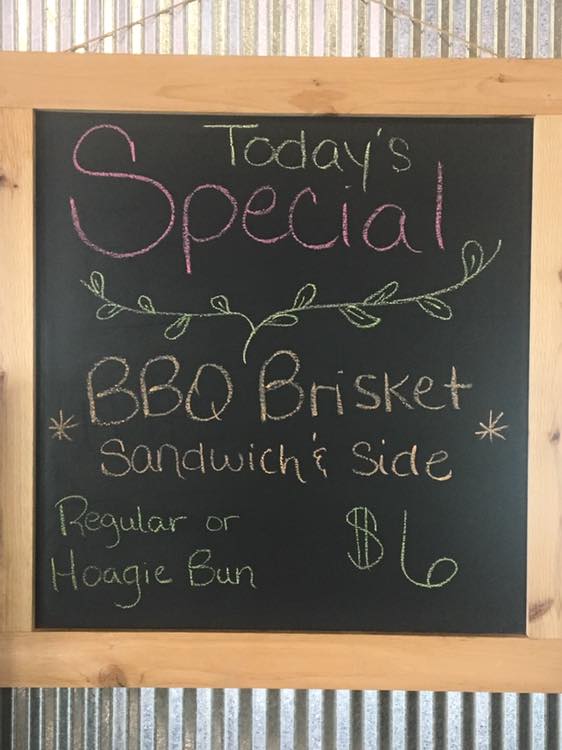 Today's
Special
BBQ Brisket
* Sandwich & Side *
Regular or
Hoagie Bun
$6